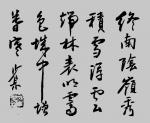 終南陰嶺秀
積雪浮云
端林表明霽
色城中增
暮寒